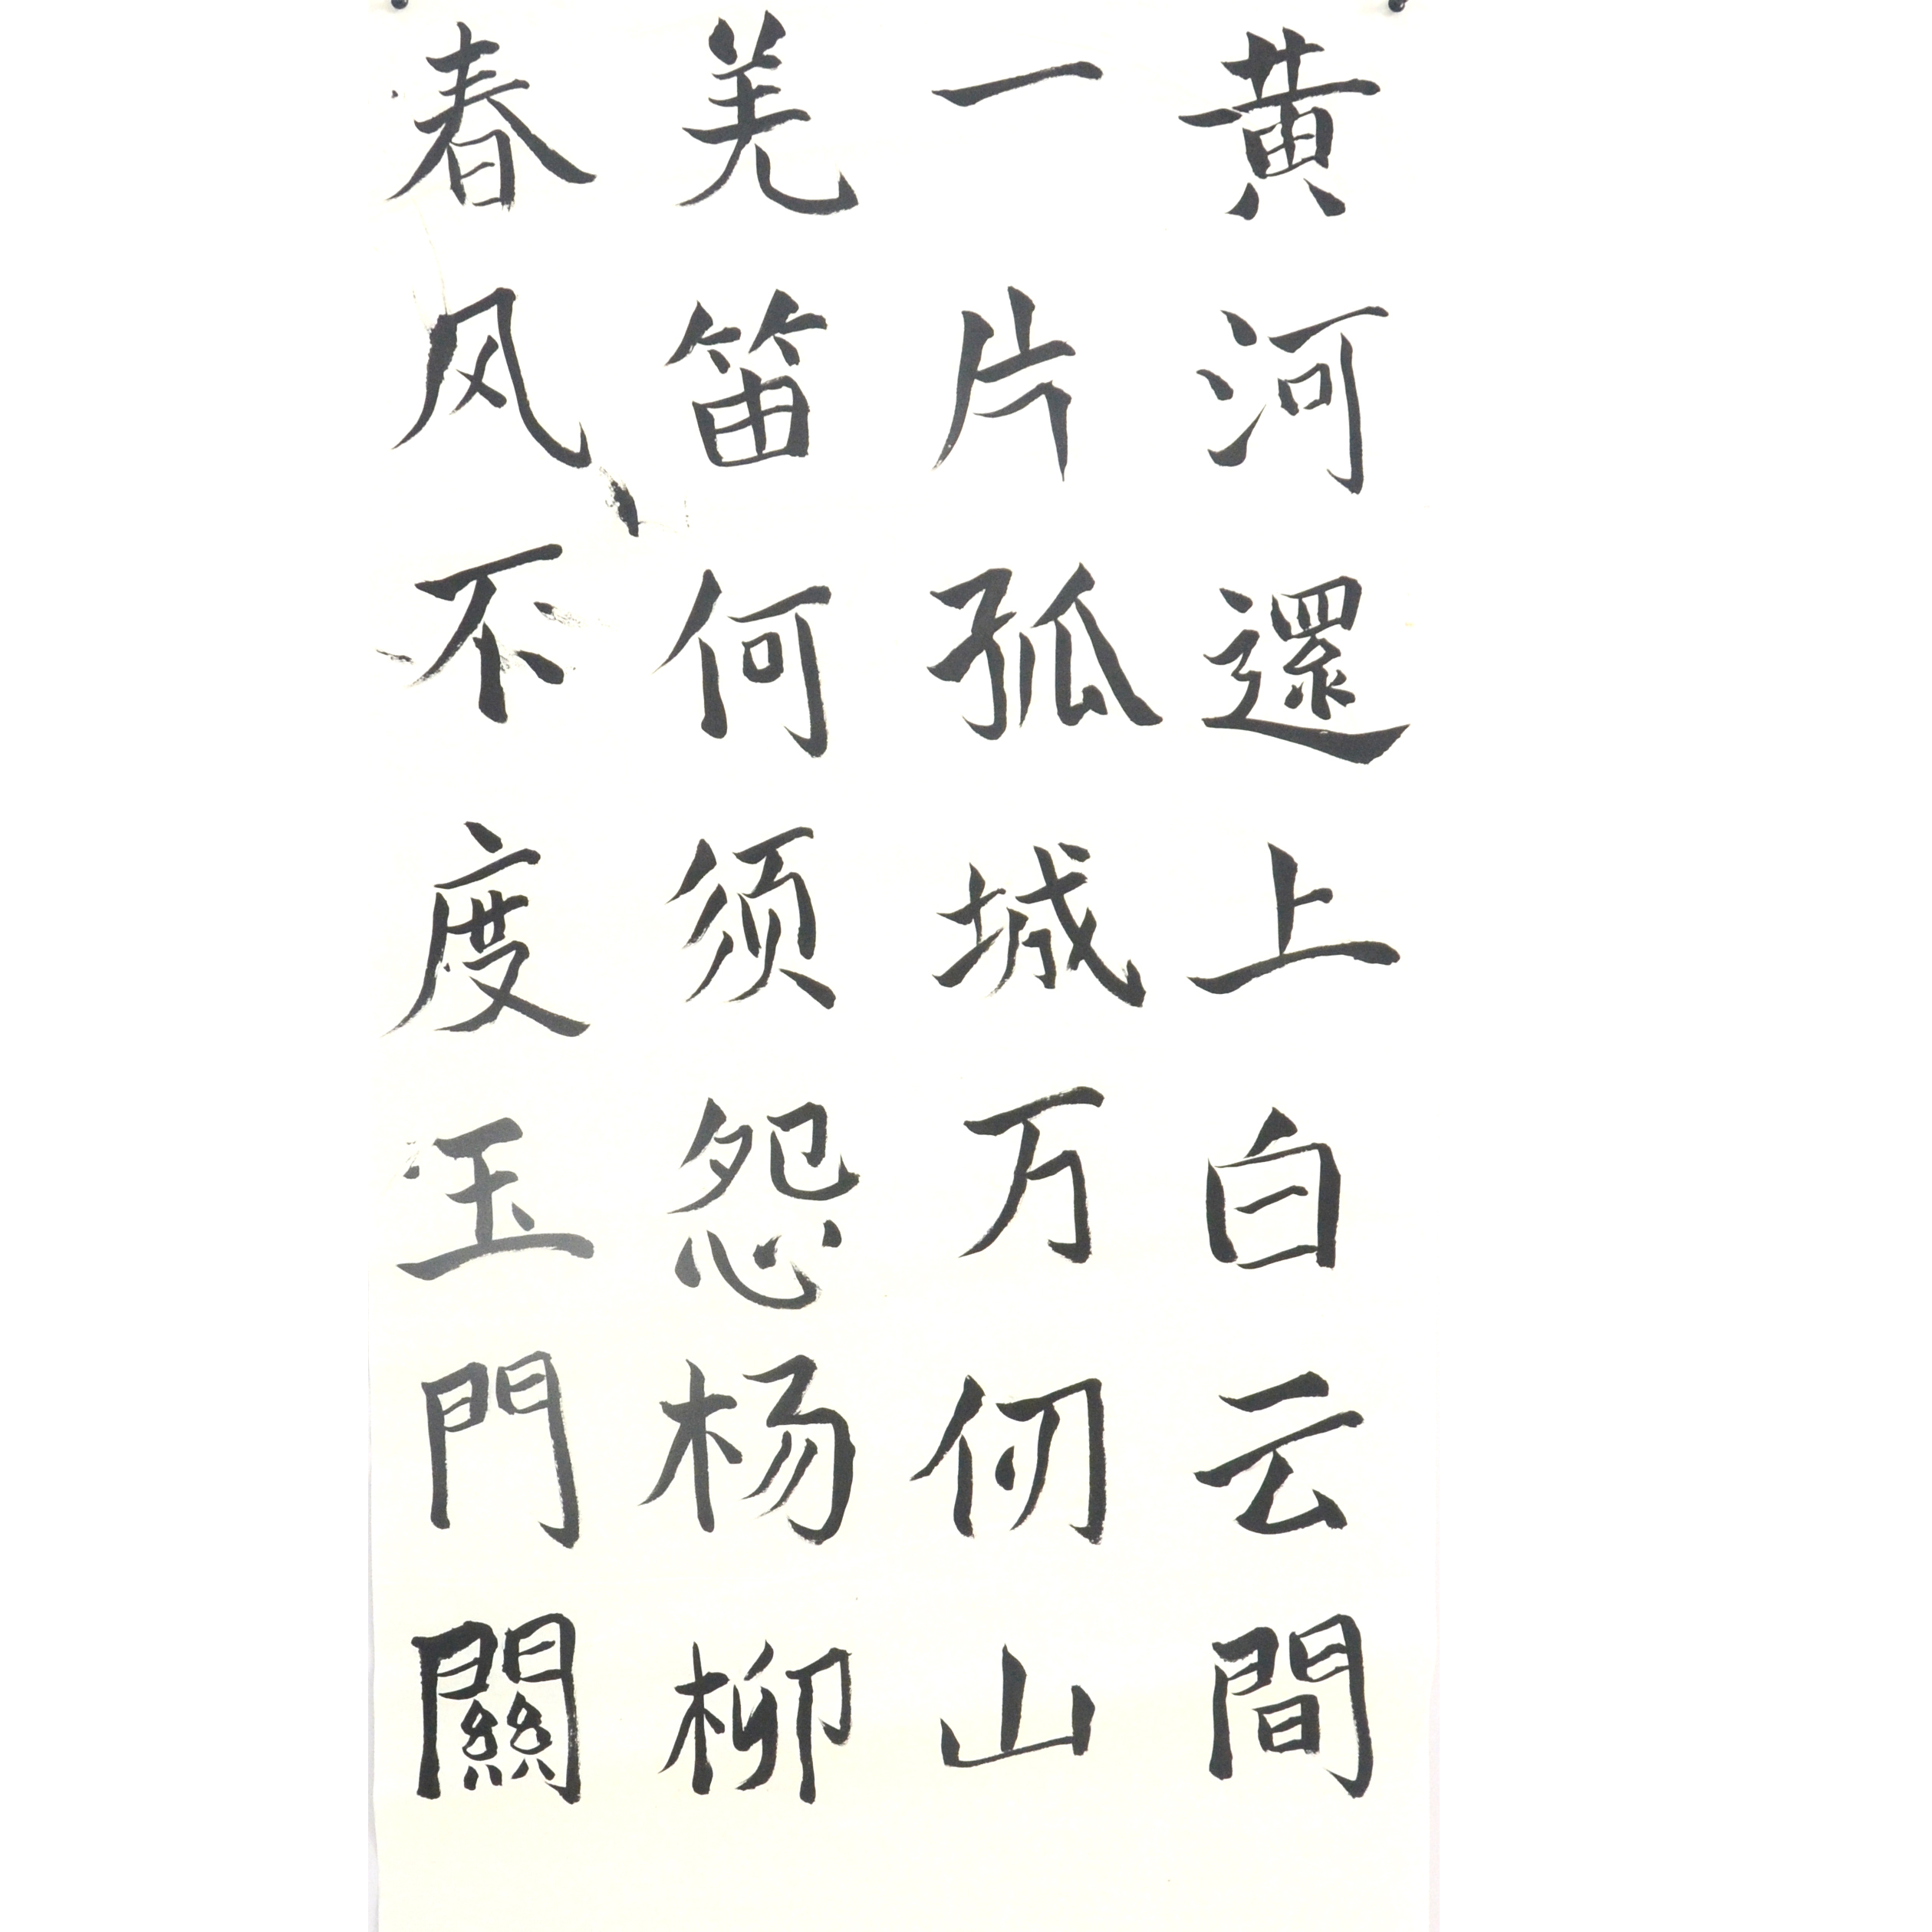 黄河還上白云間
一片孤城万仞山
羌笛何须怨杨柳
春风不度玉門關